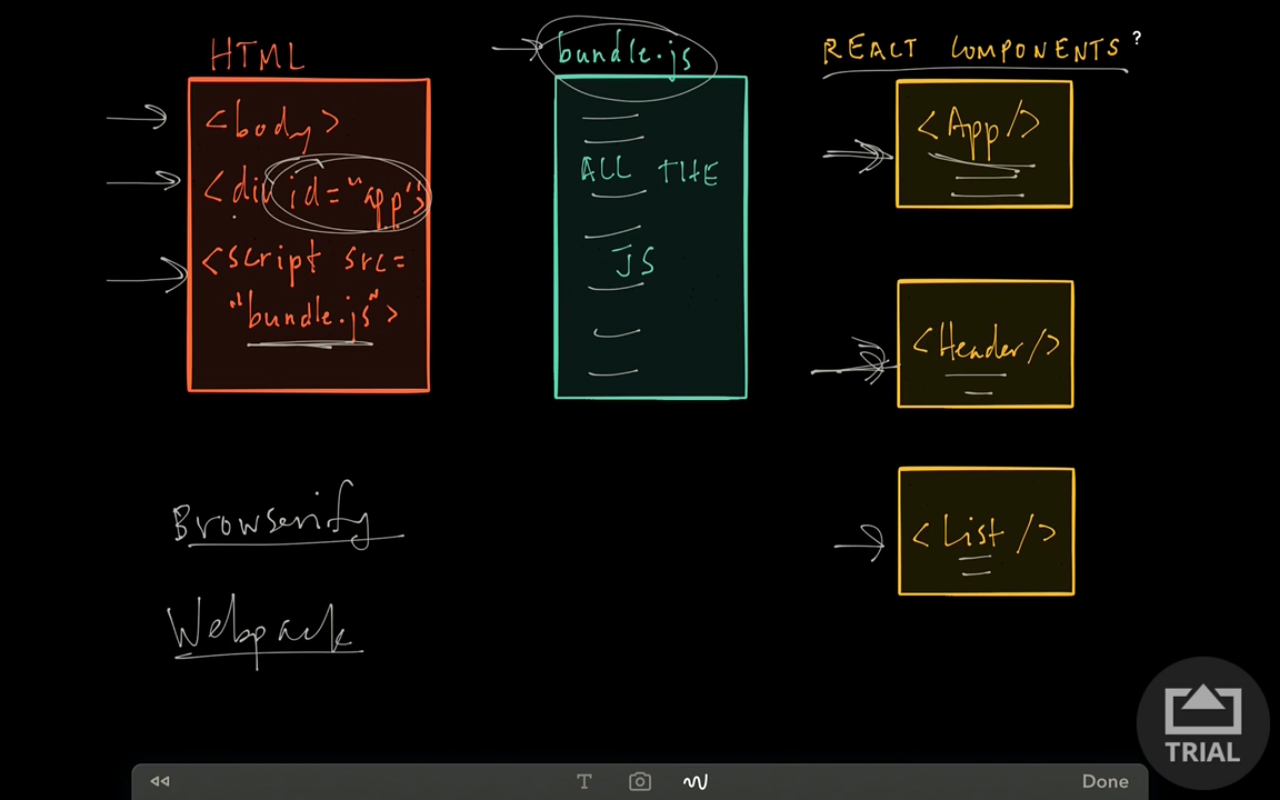 HTML
<body>
<div id="app">
<script src=
"bundle.js">
bundle.js
ALL THE
JS
REACT COMPONENTS?
<App/>
<Header/>
<List/>
Browserify
Webpack
TRIAL
T
Done